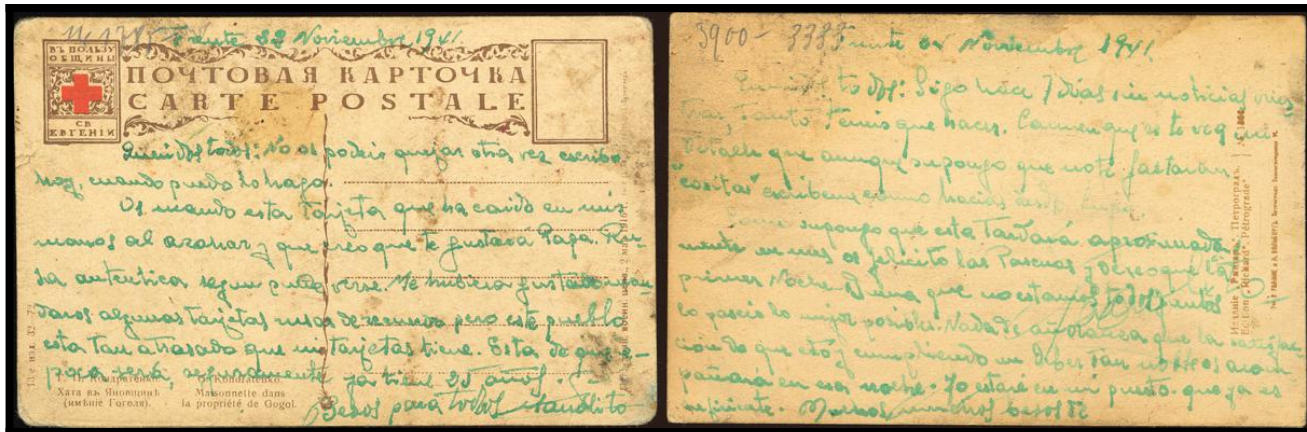 Frente 22 Noviembre 1941.
ВЪ ПОЛЬЗУ
ОБЩИНЫ
СВ
ЕВГЕНІИ
ПОЧТОВАЯ КАРТОЧКА
CARTE POSTALE
Queridos todos: No os podeis quejar otra vez escribo
hoy, cuando puedo lo hago.
Os mando esta tarjeta que ha caido en mis
manos al azahar y que creo que te gustará Papa. Ru-
sa autentica segun puede verse. Me hubiera gustado man-
daros algunas tarjetas rusas de recuerdo pero este pueblo
esta tan atrasado que ni tarjetas tiene. Esta de que e-
poca será, seguramente ya tiene 25 años.
Besos para todos
Кондратенко.
Хата въ Яновщинѣ
(имѣніе Гоголя).
G. Kondratenko.
Maisonnette dans
la propriété de Gogol.
3900 - 3385
Frente Noviembre 1941
todos: Sigo hace 7 dias sin noticias
tanto teneis que hacer. Carmen que
detalle que aunque supongo que no te faltaran
"cositas" escribeme como hacias
Como supongo que esta tardará aproximada-
mente un mes os felicito las Pascuas y deseo que la
primer Noche Buena que no estamos todos juntos
lo paseis lo mejor posible. Nada de añoranza que la satisfac-
ción de que estoy cumpliendo un deber tan os acom-
pañará en esa noche. Yo estaré en mi puesto que ya es
suficiente. Muchos muchos besos de
Изданіе „Ришаръ“, Петроградъ.
Edition „Richard“ Pétrograde